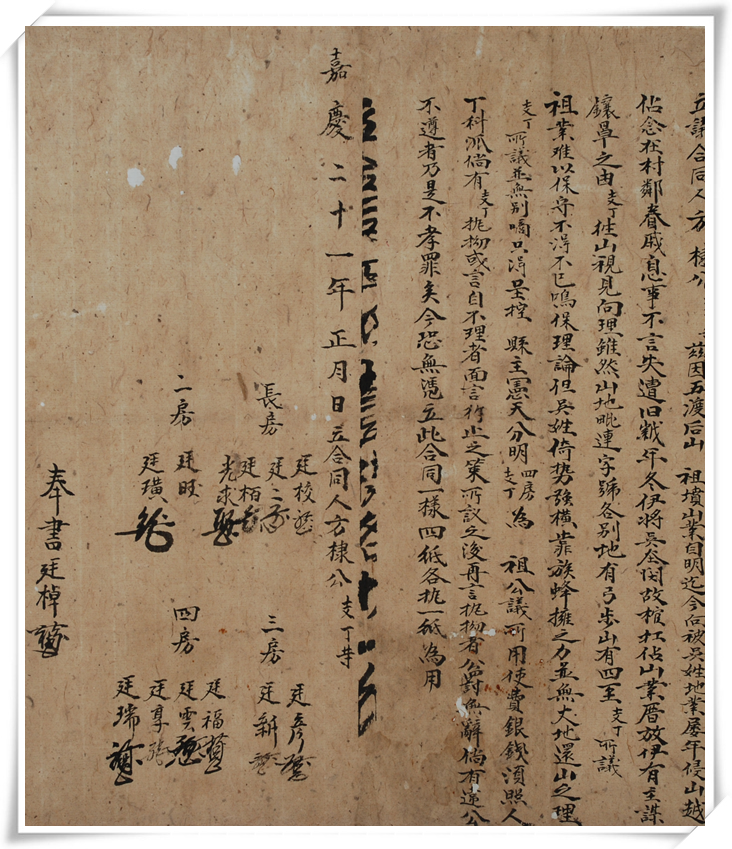 立議合同人方棣公 茲因五渡后山 祖墳山業自明迄今后被吳姓地業屢年侵山越
佔念在村鄰眷戚息事不言失遺旧歲年冬伊將吳全閏故棺扛佔山業厝放伊有主謀
釁鼻之由支丁往山視見向理雖然山地毗連字號各別地有弓步山有四至支丁所議
祖業难以保守不淂不已鳴保理論但吳姓倚势強橫靠族蜂擁之力並無大地還山之理
支丁所議並無別嘀只淂呈控 縣主憲天分明四房支丁為 祖公議所用使費銀錢須照人
丁科派倘有支丁扤拗或言自不理者面言行止之策所議之後再言扤拗者公對無辭倘有逆公
不遵者乃是不孝罪矣今恐無憑立此合同一樣四紙各执一紙為用
嘉慶二十一年正月日立合同人方棣公支丁等
長房 廷校
廷二
廷栢
光求
二房 廷旺
廷璜
三房 廷彥
廷新
四房 廷福
廷雲
廷享
廷瑞
奉書廷棹